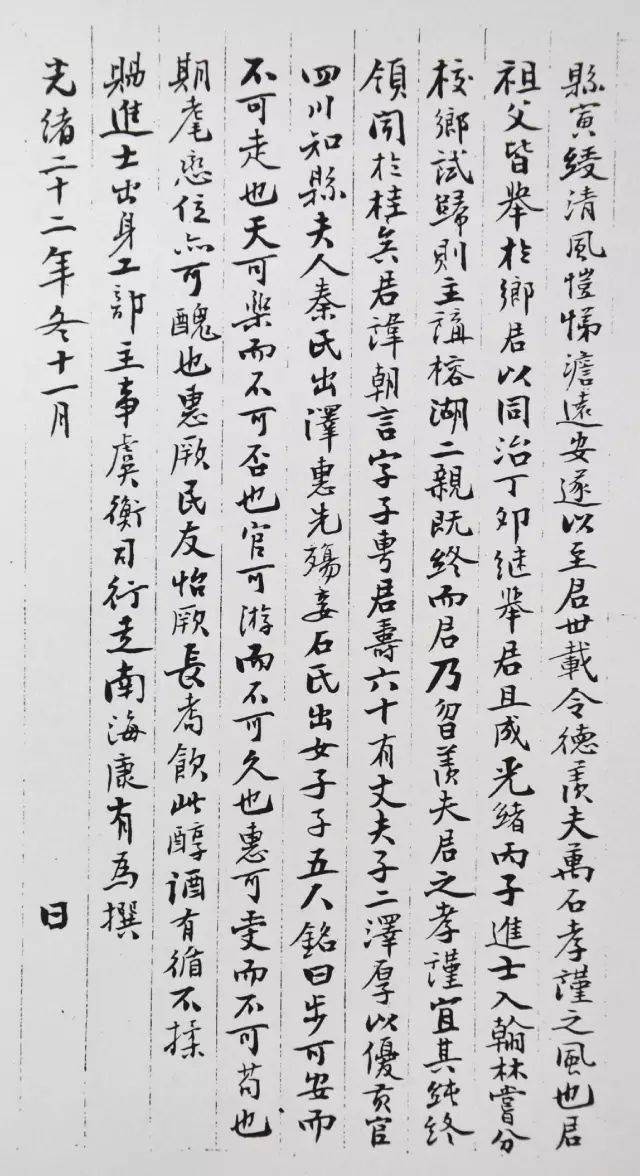 縣寅綾清風愷悌澹遠安遂以至君世載令德羨夫萬石孝謹之風也君
祖父皆舉於鄉君以同治丁卯继舉君且成光緒丙子進士入翰林嘗分
校鄉試歸則主講榕湖二親既終而君乃曶羨夫君之孝謹宜其純终
領閏於桂矣君諱朝言字子専君壽六十有丈夫子二澤厚以優貢官
四川知縣夫人秦氏出澤惠先殤妾石氏出女子子五人銘曰步可安而
不可走也天可樂而不可否也官可游而不可久也惠可爱而不可苟也
期耄恋位亦可醜也惠厥民友怡厥長耇飲此醇酒有循不揉
賜進士出身工部主事虞衡司行走南海康有為撰
光緒二十二年冬十一月 日